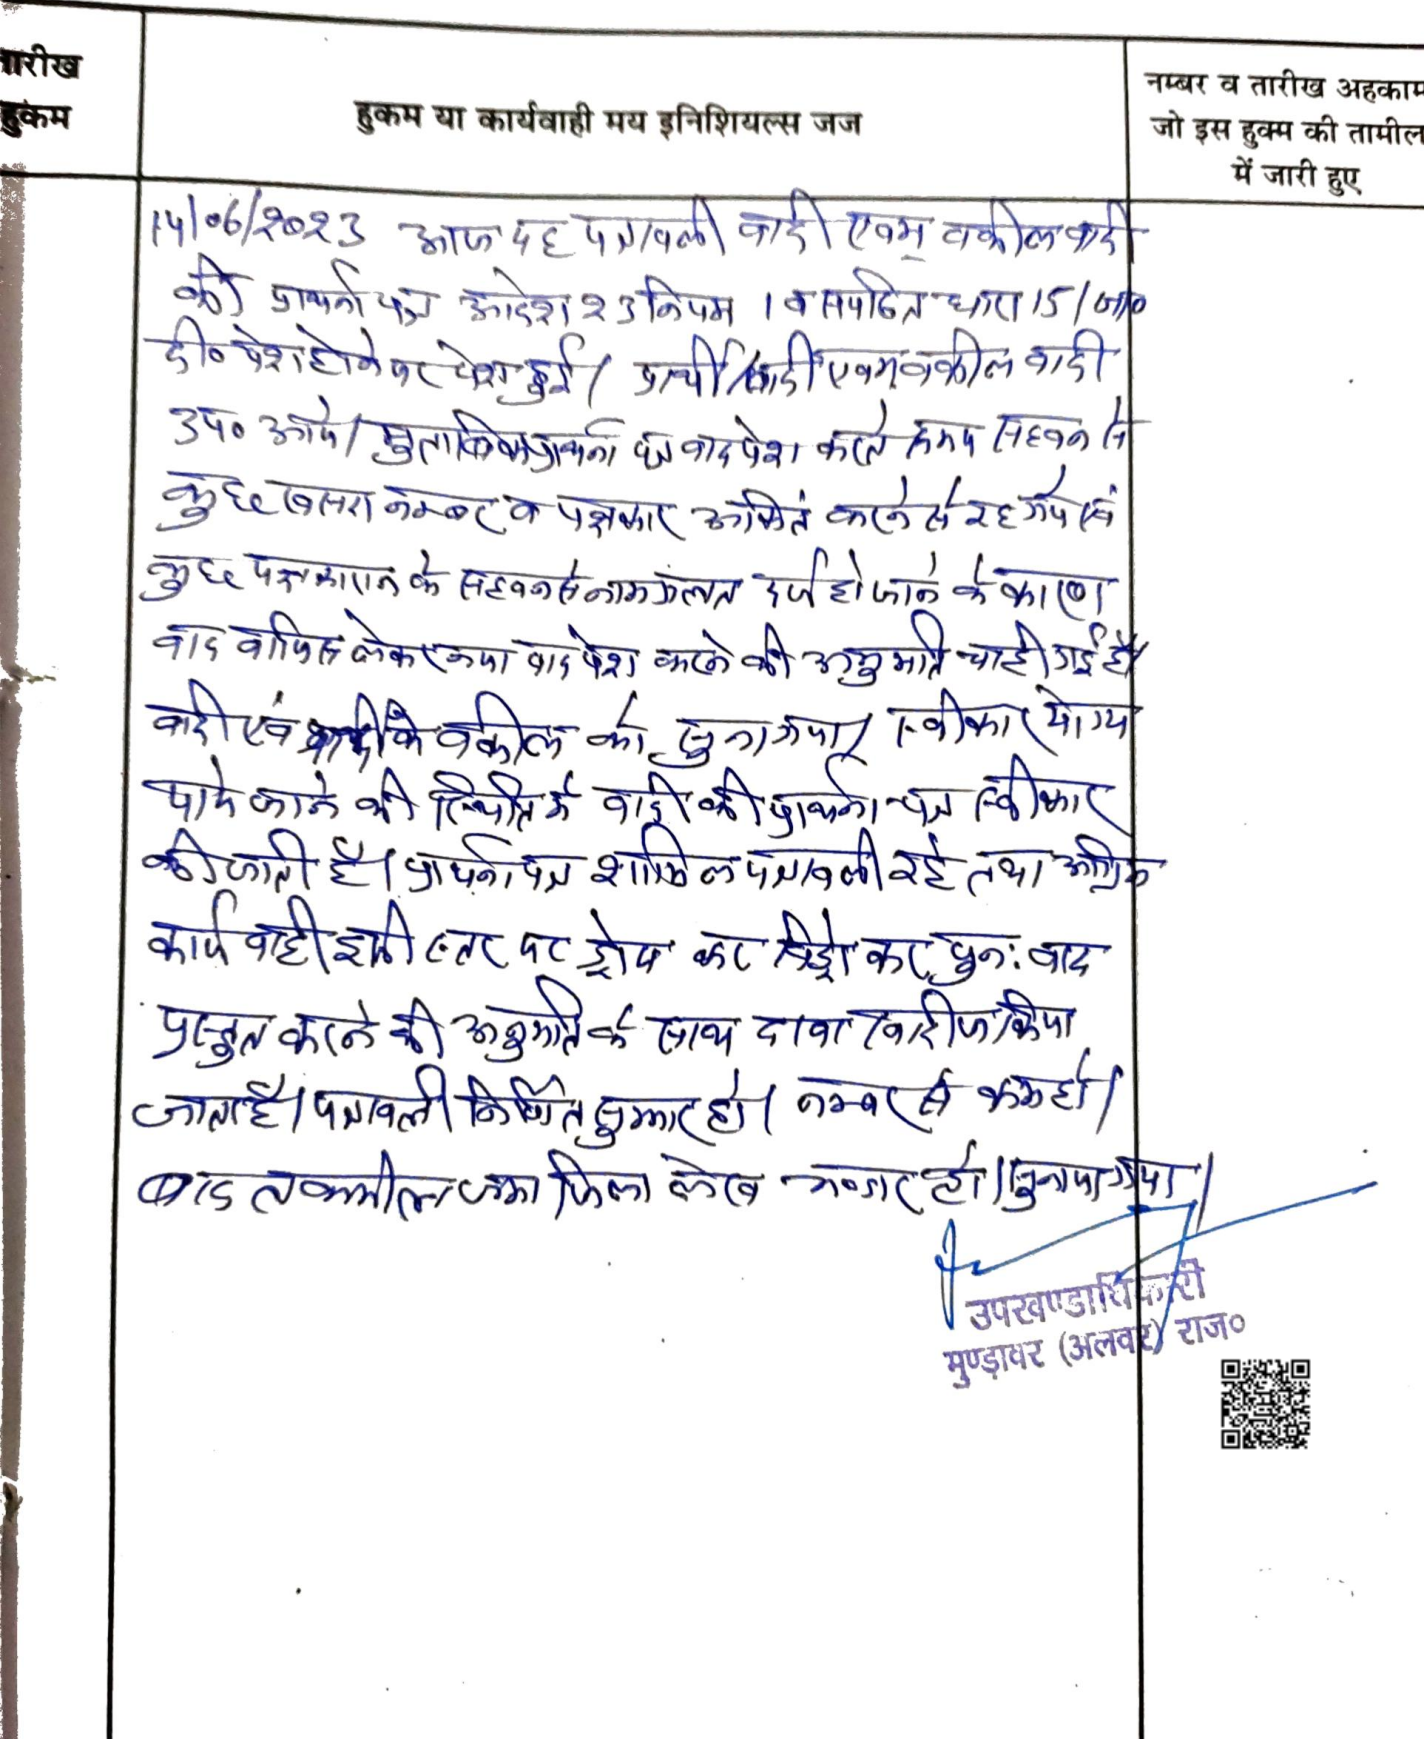 तारीख
हुकम
हुकम या कार्यवाही मय इनिशियल्स जज
नम्बर व तारीख अहकाम
जो इस हुक्म की तामील
में जारी हुए
14/06/2023 आज यह पत्रावली वादी एवम् वकील वादी
की प्रार्थना पत्र आदेश 23 नियम 1 व सपठित धारा 151 जा०
दी० पेश होने पर पेश हुई। प्रार्थी/वादी एवम वकील वादी
उप० आये। मुताबिक प्रार्थना पत्र वाद पेश करते समय सहवन से
कुछ खसरा नम्बर व पक्षकार अंकित करने से रह गये एवं
कुछ पक्षकारान के सहवन से नाम गलत दर्ज हो जाने के कारण
वाद वापिस लेकर नया वाद पेश करने की अनुमति चाही गई है।
वादी एवं वादी के वकील को सुना गया। स्वीकार योग्य
पाये जाने की स्थिति में वादी की प्रार्थना पत्र स्वीकार
की जाती है। प्रार्थना पत्र शामिल पत्रावली रहे तथा अग्रिम
कार्यवाही इसी स्तर पर ड्रोप कर विड्रो कर पुनः वाद
प्रस्तुत करने की अनुमति के साथ दावा खारीज किया
जाता है। पत्रावली निर्णित शुमार हो। नम्बर से कम हो।
बाद तकमील जमा जिला लेख भण्डार हो। सुनाया गया।
उपखण्डाधिकारी
मुण्ड़ावर (अलवर) राज०